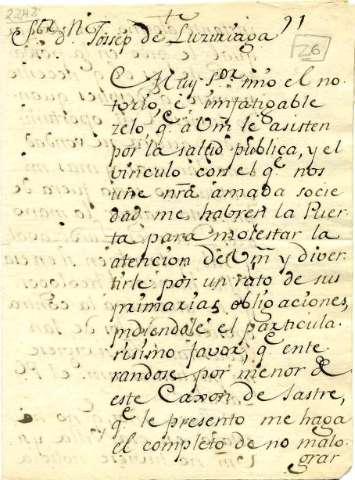 2243
Sr. Dn. Josep de Luzuriaga
21
26
Muy Sor. mio el no-
torio, é imfatigable
zelo, q.e a Vm le asisten
por la salud publica, y el
vinculo con el q.e nos
une nrã amada socie
dad me habren la Puer
ta para molestar la
atencion de Vm̃ y diver
tirle por un rato de sus
primarias obligaciones,
pidiendole el particula-
risimo favor, q.e ente
randose por menor de
este Caxon de Sastre,
q.e le presento me haga
el completo de no malo-
grar